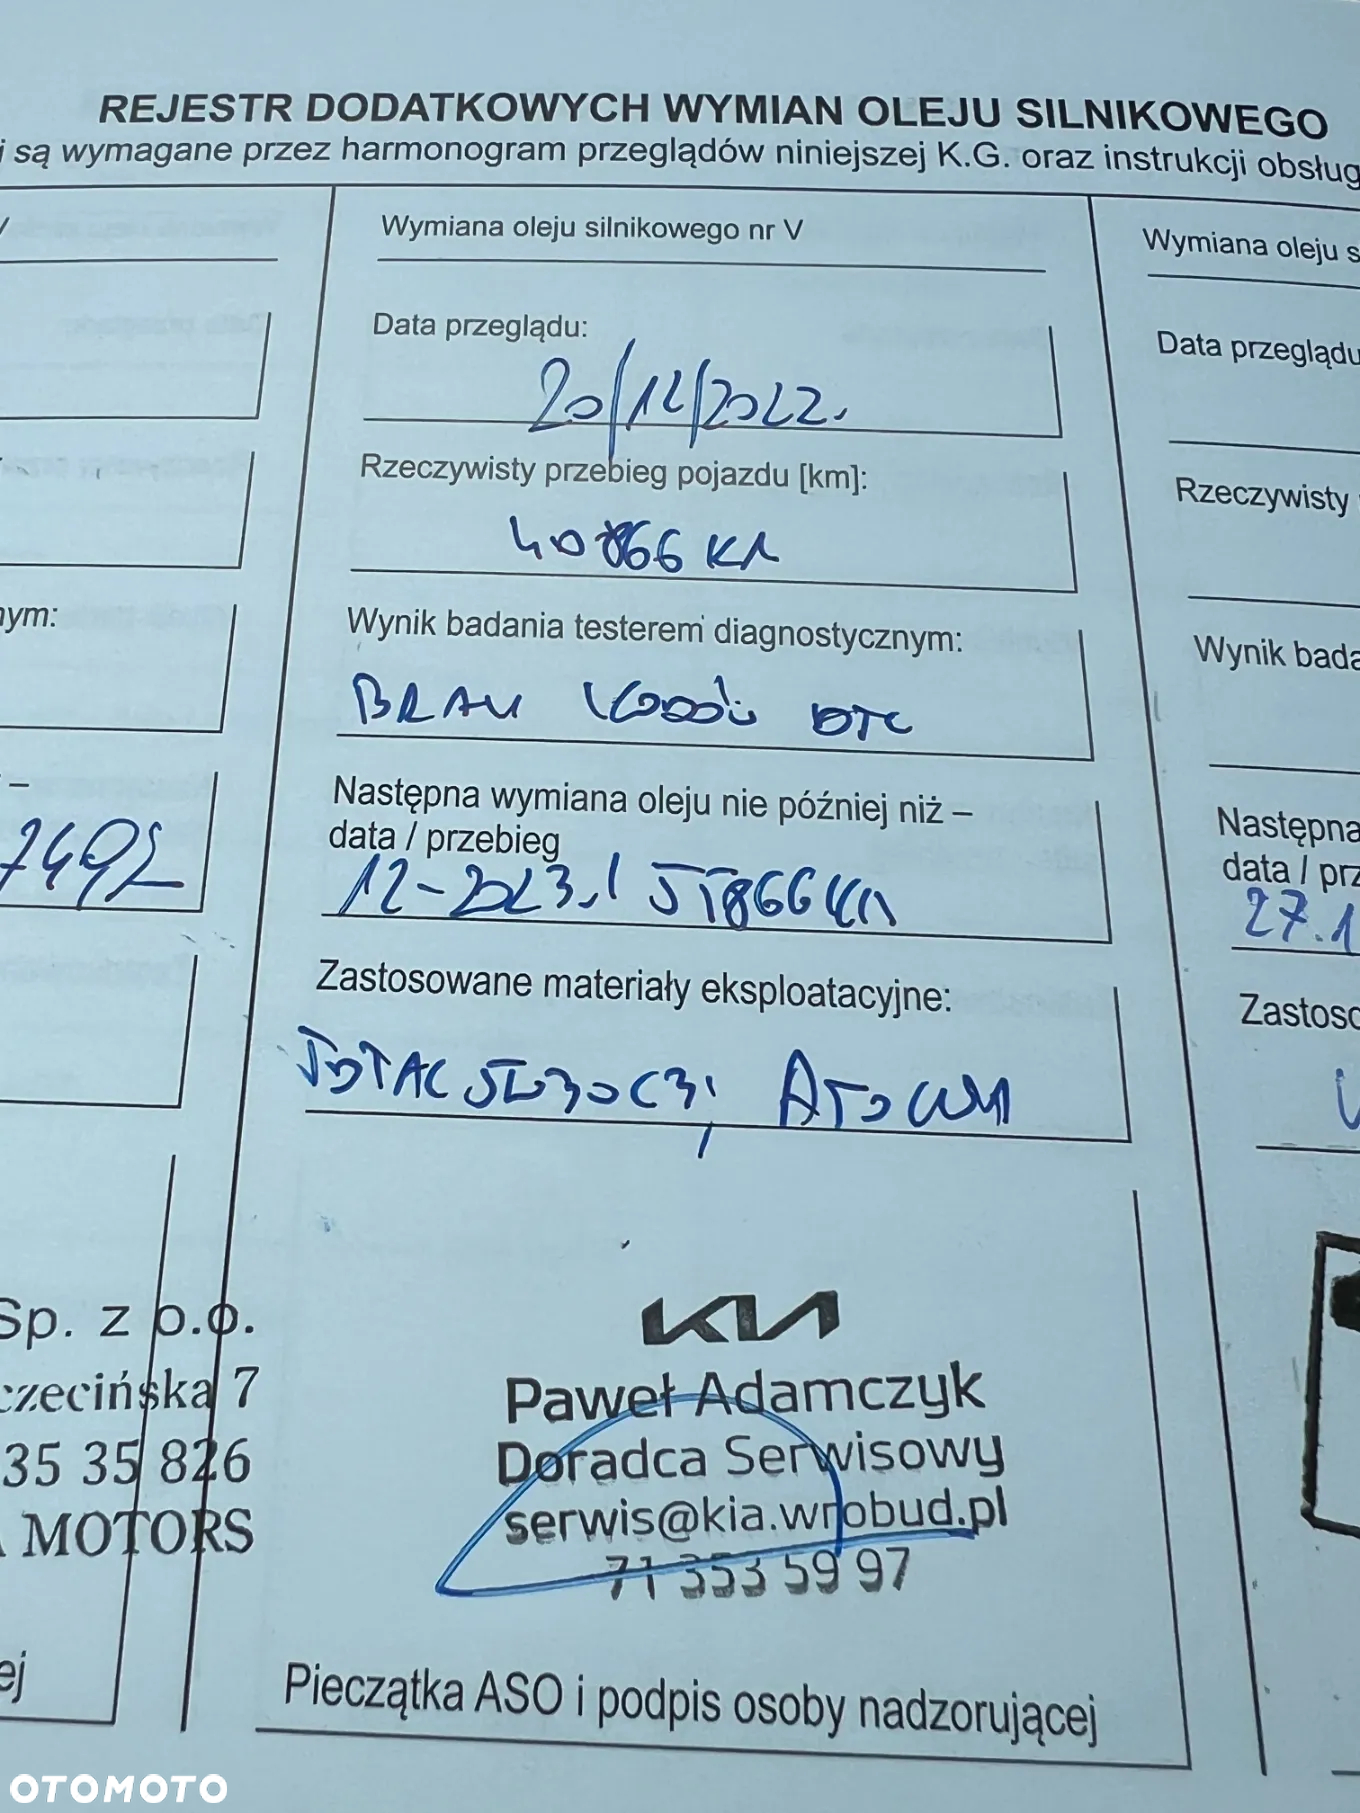 REJESTR DODATKOWYCH WYMIAN OLEJU SILNIKOWEGO
są wymagane przez harmonogram przeglądów niniejszej K.G. oraz instrukcji obsług
Wymiana oleju silnikowego nr V
Data przeglądu:
20/12/2022.
Rzeczywisty przebieg pojazdu [km]:
40866 KM
Wynik badania testerem diagnostycznym:
BRAK KODÓW DTC
Następna wymiana oleju nie później niż –
data / przebieg
12-2023./ 55866 KM
Zastosowane materiały eksploatacyjne:
TOTAL 5W30 C3,
Paweł Adamczyk
Doradca Serwisowy
serwis@kia.wrobud.pl
71 353 59 97
Pieczątka ASO i podpis osoby nadzorującej
nym:
–
7492
Sp. z o.o.
zczecińska 7
35 35 826
MOTORS
ej
Wymiana oleju s
Data przeglądu
Rzeczywisty
Wynik bada
Następna
data / prz
27.1
Zastoso
KIA
OTOMOTO